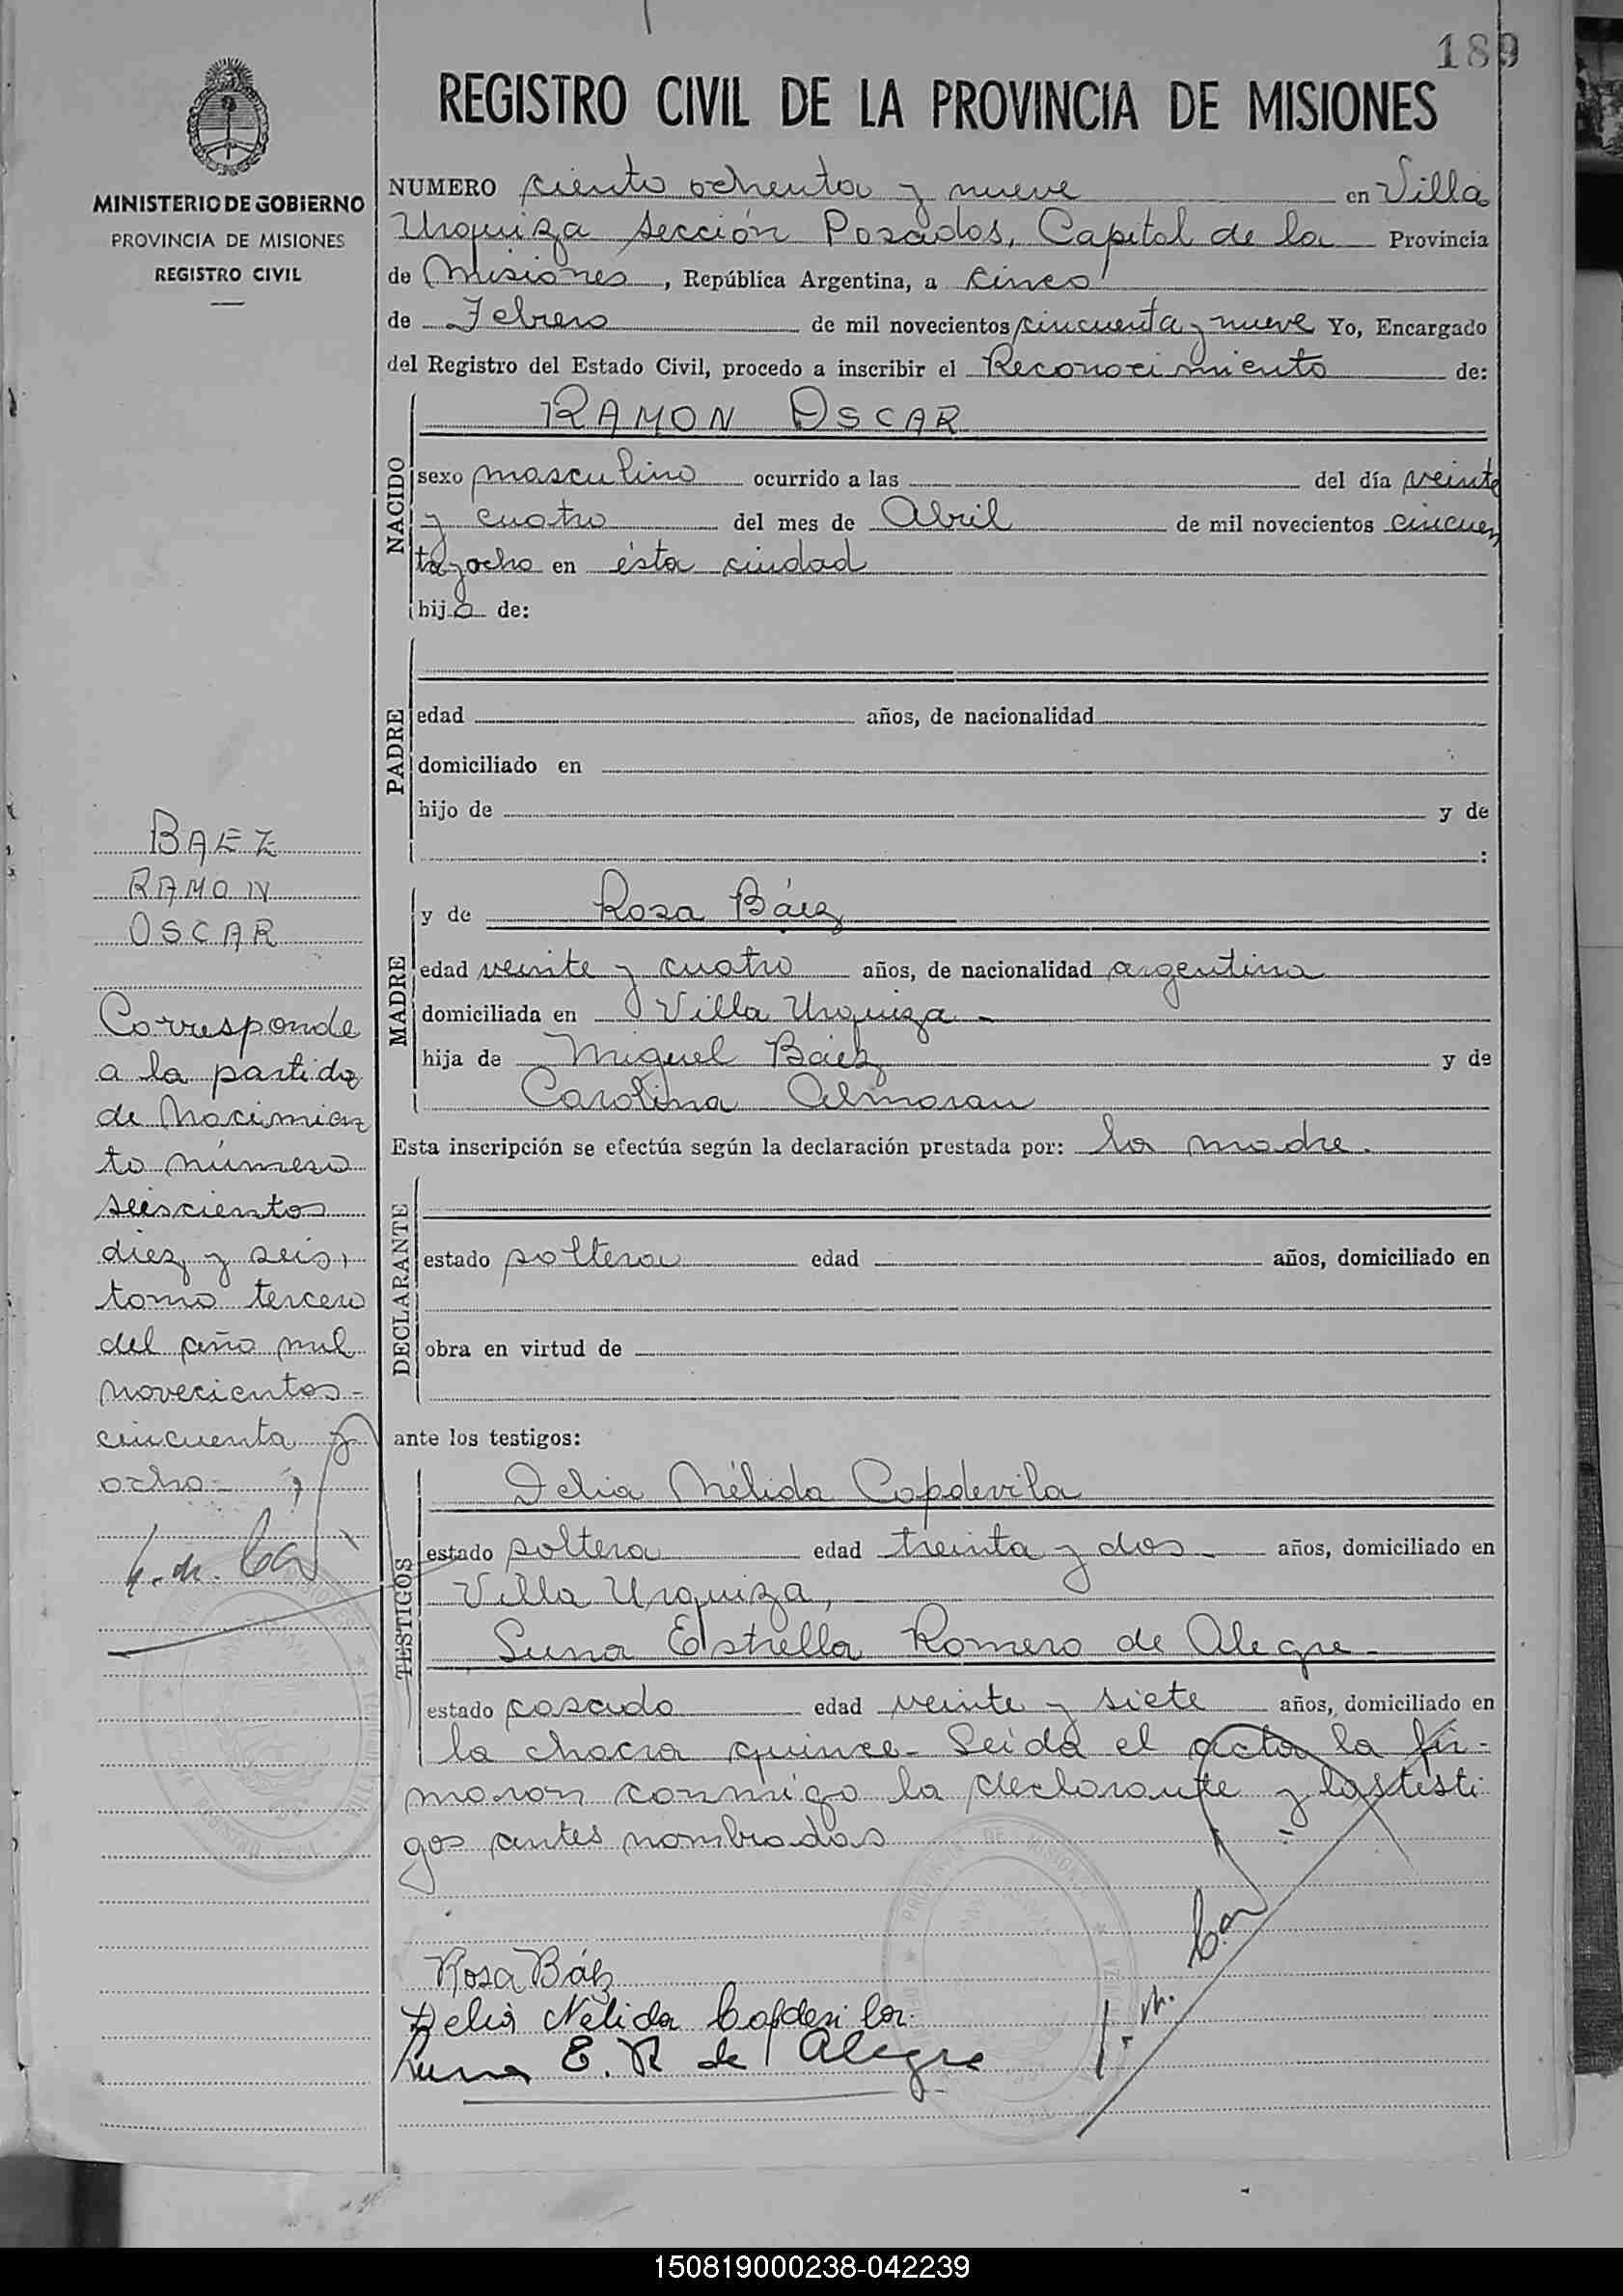 189
REGISTRO CIVIL DE LA PROVINCIA DE MISIONES
MINISTERIO DE GOBIERNO
PROVINCIA DE MISIONES
REGISTRO CIVIL
NUMERO ciento ochenta y nueve en Villa
Urquiza sección Posadas, Capital de la Provincia
de Misiones, República Argentina, a cinco
de Febrero de mil novecientos cincuenta y nueve Yo, Encargado
del Registro del Estado Civil, procedo a inscribir el Reconocimiento de:
NACIDO
RAMON OSCAR
sexo masculino ocurrido a las del día veinte
y cuatro del mes de Abril de mil novecientos cincuen
ta y ocho en ésta ciudad
hijo de:
PADRE
edad años, de nacionalidad
domiciliado en
hijo de y de
:
MADRE
y de Rosa Báez
edad veinte y cuatro años, de nacionalidad argentina
domiciliada en Villa Urquiza -
hija de Miguel Báez y de
Carolina Almoran
Esta inscripción se efectúa según la declaración prestada por: la madre.
DECLARANTE
estado soltera edad años, domiciliado en
obra en virtud de
ante los testigos:
TESTIGOS
Delia Nélida Capdevila
estado soltera edad treinta y dos - años, domiciliado en
Villa Urquiza,
Luna Estrella Romero de Alegre -
estado casada edad veinte y siete años, domiciliado en
la chacra quince - Leída el acta la fir-
maron conmigo la declarante y las testi
gos antes nombradas
Rosa Báez
Delia Nélida Capdevila
Luna E. R de Alegre
BAEZ
RAMON
OSCAR
Corresponde
a la partida
de Nacimien
to número
seiscientos
diez y seis,
tomo tercero
del año mil
novecientos -
cincuenta y
ocho -
150819000238-042239